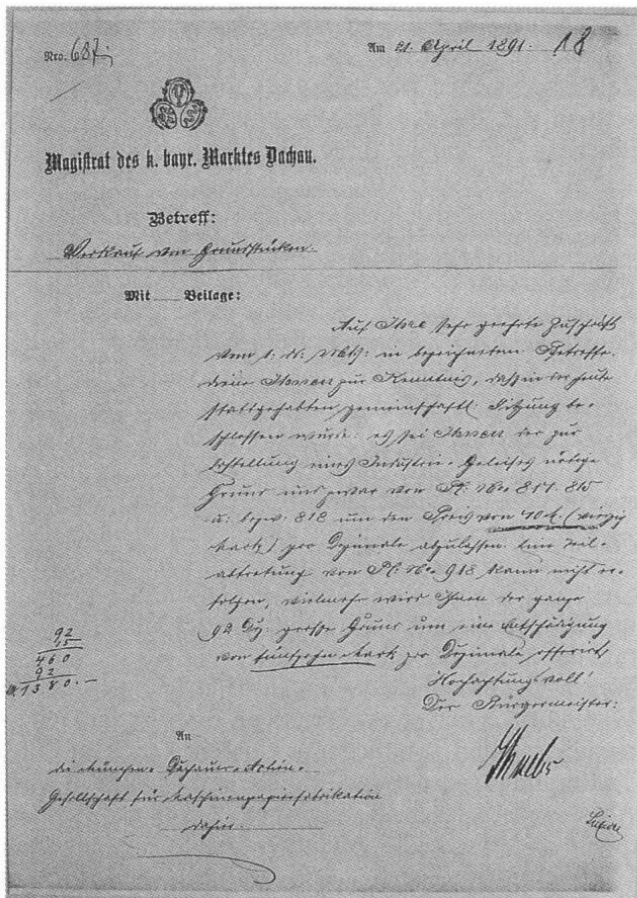 Nro: 687.
Am 21. April 1891. 18
Magistrat des k. bayr. Marktes Dachau.
Betreff:
Verkauf von Grundstücken
Mit Beilage:
Auf Ihre sehr geehrte Zuschrift
vom 1. ds. Mts. in bezeichnetem Betreffe
diene Ihnen zur Kenntnis, daß in der heute
stattgehabten gemeinschaftl. Sitzung be-
schlossen wurde: es sei Ihnen der zur
Erstellung eines Industrie-Geleises nötige
Grund und zwar von Pl. No. 817. 815
u. bezw. 818 um den Preis von 40 M. (vierzig
Mark) pro Dezimale abzulassen. Eine Teil-
abtretung von Pl. No. 918 kann nicht er-
folgen, vielmehr wird Ihnen der ganze
92 Dez. große Grund um eine Entschädigung
von fünfzehn Mark pro Dezimale offerirt.
Hochachtungsvoll!
Der Bürgermeister:
92
15
460
92
M 1380.-
An
die München-Dachauer-Actien-
Gesellschaft für Maschinenpapierfabrikation
dahier.